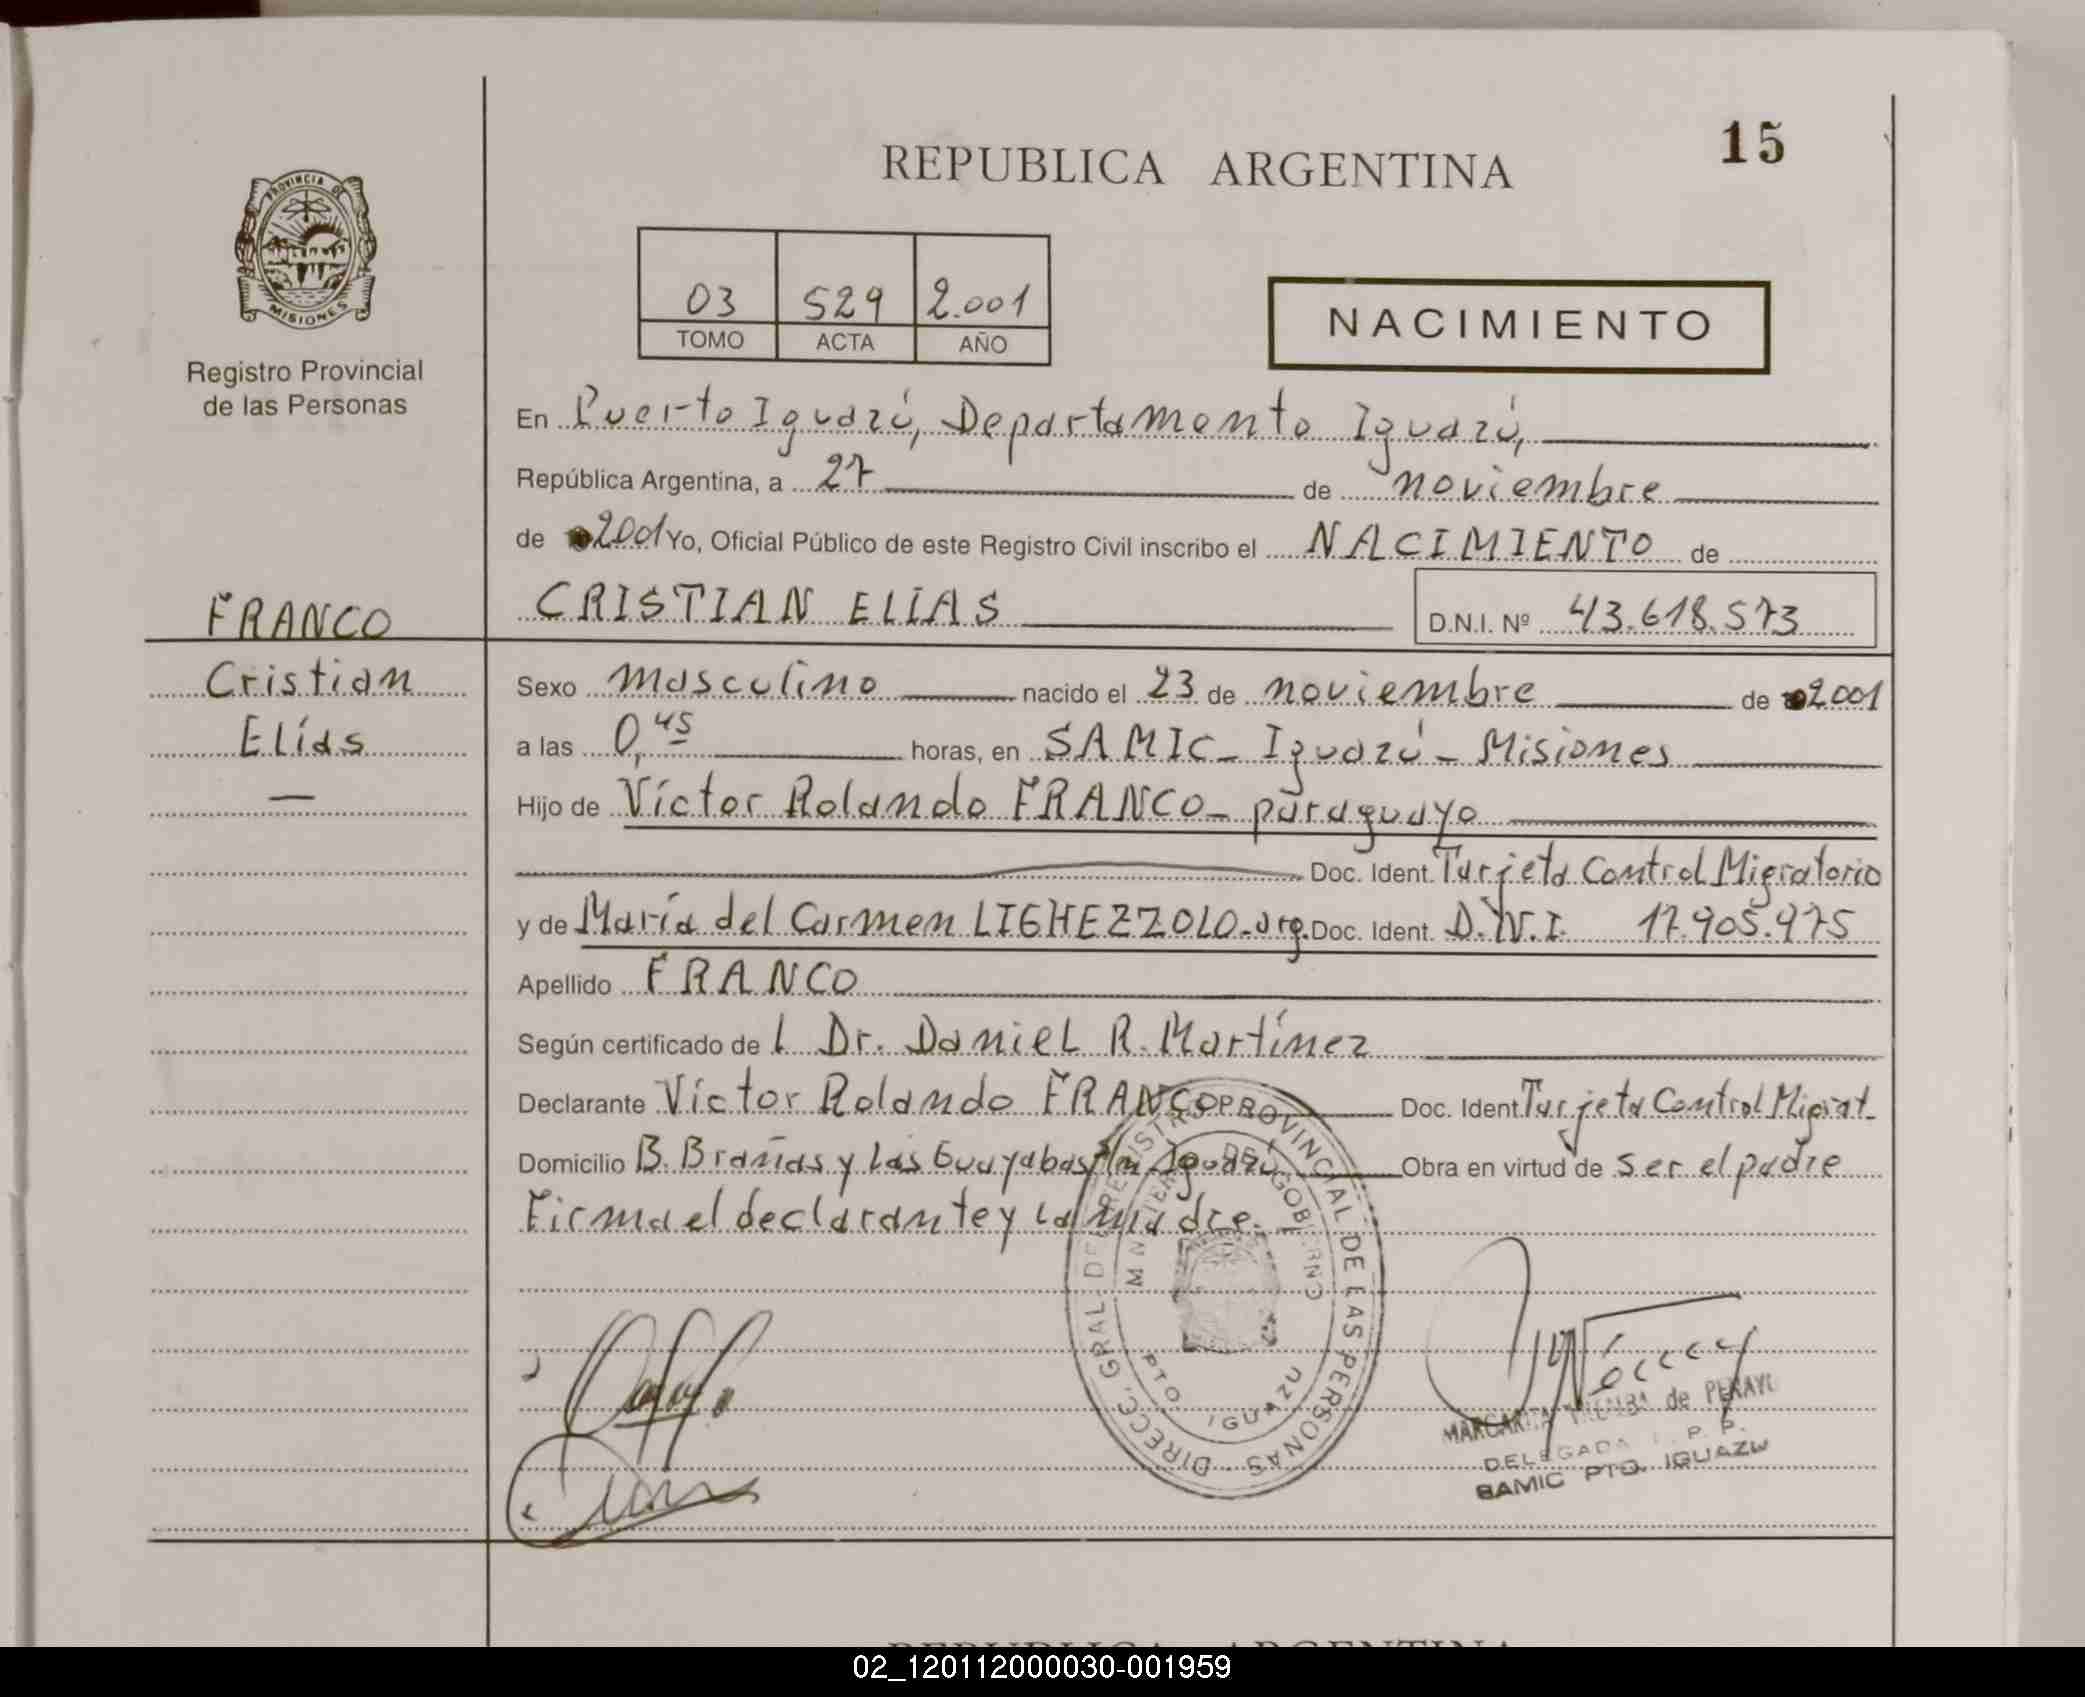 15
REPUBLICA ARGENTINA
PROVINCIA DE
MISIONES
Registro Provincial
de las Personas
03 529 2.001
TOMO ACTA AÑO
NACIMIENTO
En Puerto Iguazú, Departamento Iguazú,
República Argentina, a 27 de noviembre
de 2001 Yo, Oficial Público de este Registro Civil inscribo el NACIMIENTO de
FRANCO
Cristian
Elías
CRISTIAN ELIAS D.N.I. Nº 43.618.573
Sexo masculino nacido el 23 de noviembre de 2001
a las 0,45 horas, en SAMIC - Iguazú - Misiones
Hijo de Víctor Rolando FRANCO - paraguayo
Doc. Ident. Tarjeta Control Migratorio
y de María del Carmen LIGHEZZOLO - arg. Doc. Ident. D.N.I. 17.905.975
Apellido FRANCO
Según certificado de l Dr. Daniel R. Martínez
Declarante Víctor Rolando FRANCO Doc. Ident Tarjeta Control Migrat.
Domicilio B. Brañas y Las Guayabas Iguazú Obra en virtud de ser el padre
Firma el declarante y la madre.
DIRECC. GRAL. DEL REGISTRO PROVINCIAL DE LAS PERSONAS
MINISTERIO DE GOBIERNO
PTO. IGUAZU
MARGARITA de
DELEGADA P. P.
SAMIC PTO. IGUAZU
REPUBLICA ARGENTINA
02_120112000030-001959